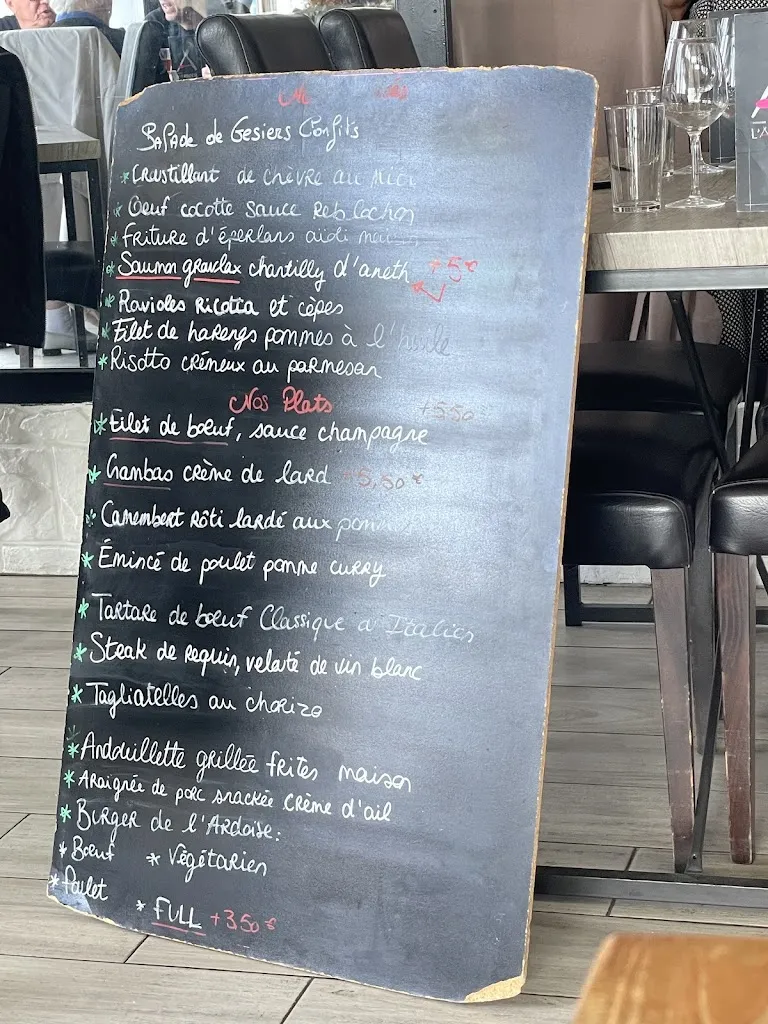 Salade de Gesiers Confits
* Crustillant de chèvre au Miel
* Oeuf cocotte sauce Reblochon
* Friture d'éperlans aïoli maison
* Saumon gravelax chantilly d'aneth +5€
* Ravioles Ricotta et cèpes
* Filet de harengs pommes à l'huile
* Risotto crémeux au parmesan
Nos Plats +5,50
* Filet de bœuf, sauce champagne
* Gambas crème de lard +5,50€
* Camembert rôti lardé aux
* Émincé de poulet pomme curry
* Tartare de bœuf Classique
* Steak de requin, velouté de vin blanc
* Tagliatelles au chorizo
* Andouillette grillée frites maison
* Araignée de porc snackée crème d'ail
* Burger de l'Ardoise:
* Bœuf * Végétarien
* Poulet
* FULL +3,50€
L'A